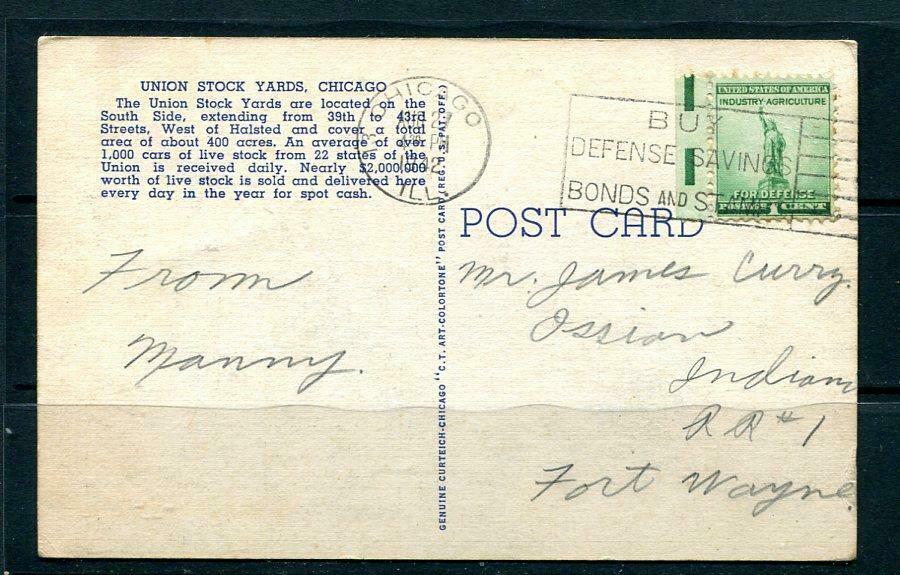 UNION STOCK YARDS, CHICAGO
The Union Stock Yards are located on the
South Side, extending from 39th to 43rd
Streets, West of Halsted and cover a total
area of about 400 acres. An average of over
1,000 cars of live stock from 22 states of the
Union is received daily. Nearly $2,000,000
worth of live stock is sold and delivered here
every day in the year for spot cash.
From
Manny.
GENUINE CURTEICH-CHICAGO "C.T. ART-COLORTONE" POST CARD (REG. U.S. PAT. OFF.)
CHICAGO
27
PM
ILL.
BUY
DEFENSE SAVINGS
BONDS AND
UNITED STATES OF AMERICA
INDUSTRY-AGRICULTURE
FOR DEFENSE
POSTAGE 1 CENT
POST CARD
Mr. James Curry.
Ossian
Indiana
RR#1
Fort Wayne